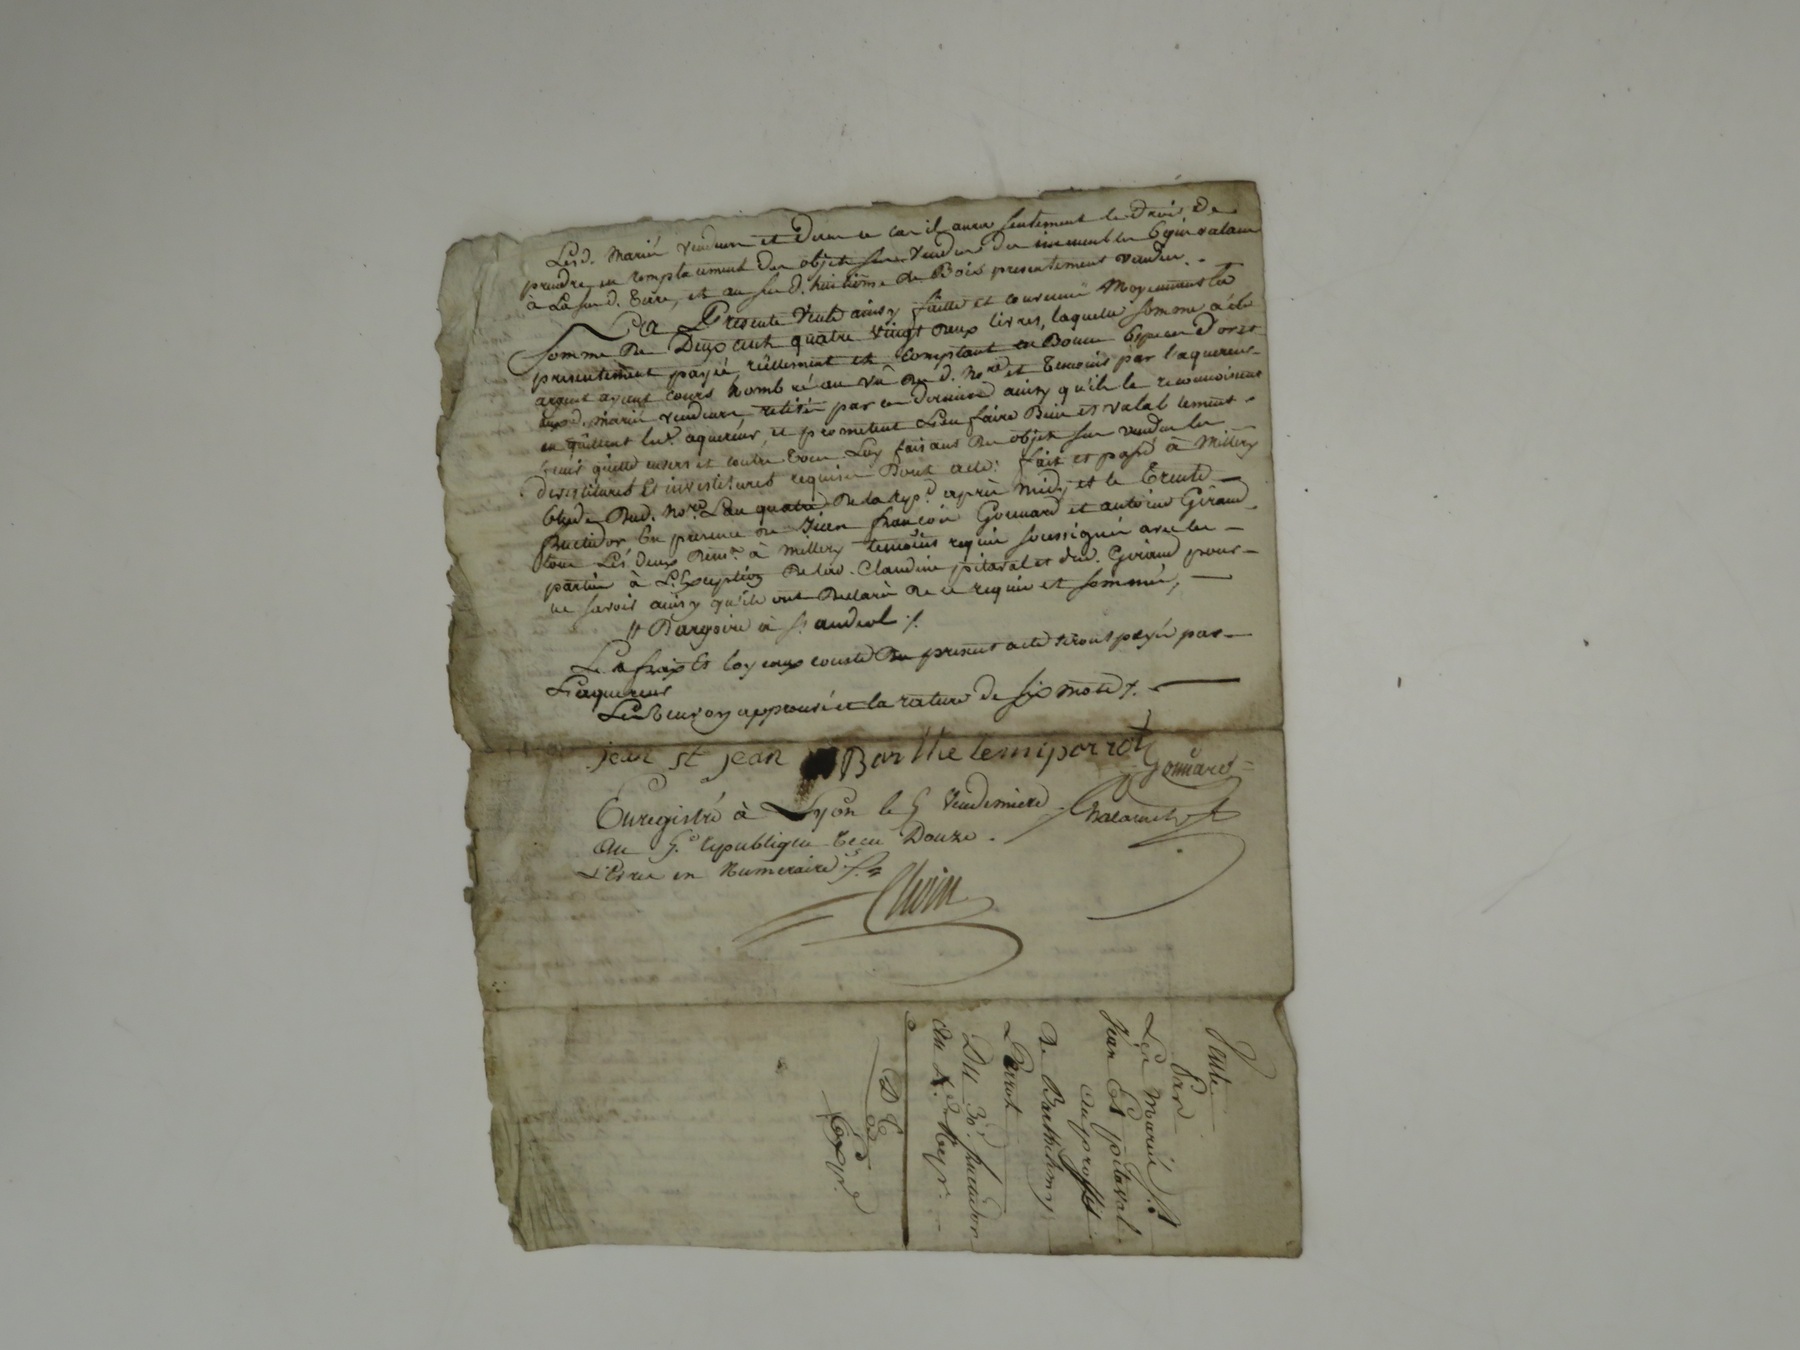 Lesd. Mariés vendeurs et dans ce cas il aura seulement le droit de
prendre en remplacement des objets sus vendus des immeubles Equivalans
à La susd. terre, et au susd. huitième de Bois presentement vendus. -
La Presente Vente ainsy faitte et convenue Moyennant la
somme de Deux cent quatre vingt deux livres, laquelle somme a été
presentement payée, réellement et comptant en Bonne Espece d'or et
argent ayant cours nombré au vû dud. Nore. et temoins par l'aquereur
auxd. mariés vendeurs retirée par ces derniers ainsy qu'ils le reconnoissent
en quittent led. aquereur, et promettent L'en faire tenir
quitte envers et contre tous Luy faisant des objets sus vendus les
devestitures Et investitures requises Dont acte: fait et passé à Millery
Etude Dud. Nore. L'an quatre De la Rep.e après midy et le trente
fructidor En presence de Jean françois Gonnard et antoine Giraud
tous Les deux Dem.t à Millery temoins requis soussignés avec les
parties à L'Exception de lad. Claudine pitaval et dud. Giraud pour
ne savoir ainsy qu'ils ont Declaré de ce requis et sommés, —
// Dargoire à St. andeol ./.
Les frais Et loyeaux couts du present acte seront payés par
L'aquereur
Les renvoy approuvé et la rature de six mots ./.
jean st jean Barthelemi porrot
Gonnard
Enregistré à Lyon le 5 Vendemiere
An 5.e republique recu Douze
Livres en Numeraire ./.
Vente
Par
Les Mariés St.
Jean Et pitaval
au proffit
de Barthelemy
Parrot
Du 30. fructidor
an 4. de la Rep.
D E
Exp.